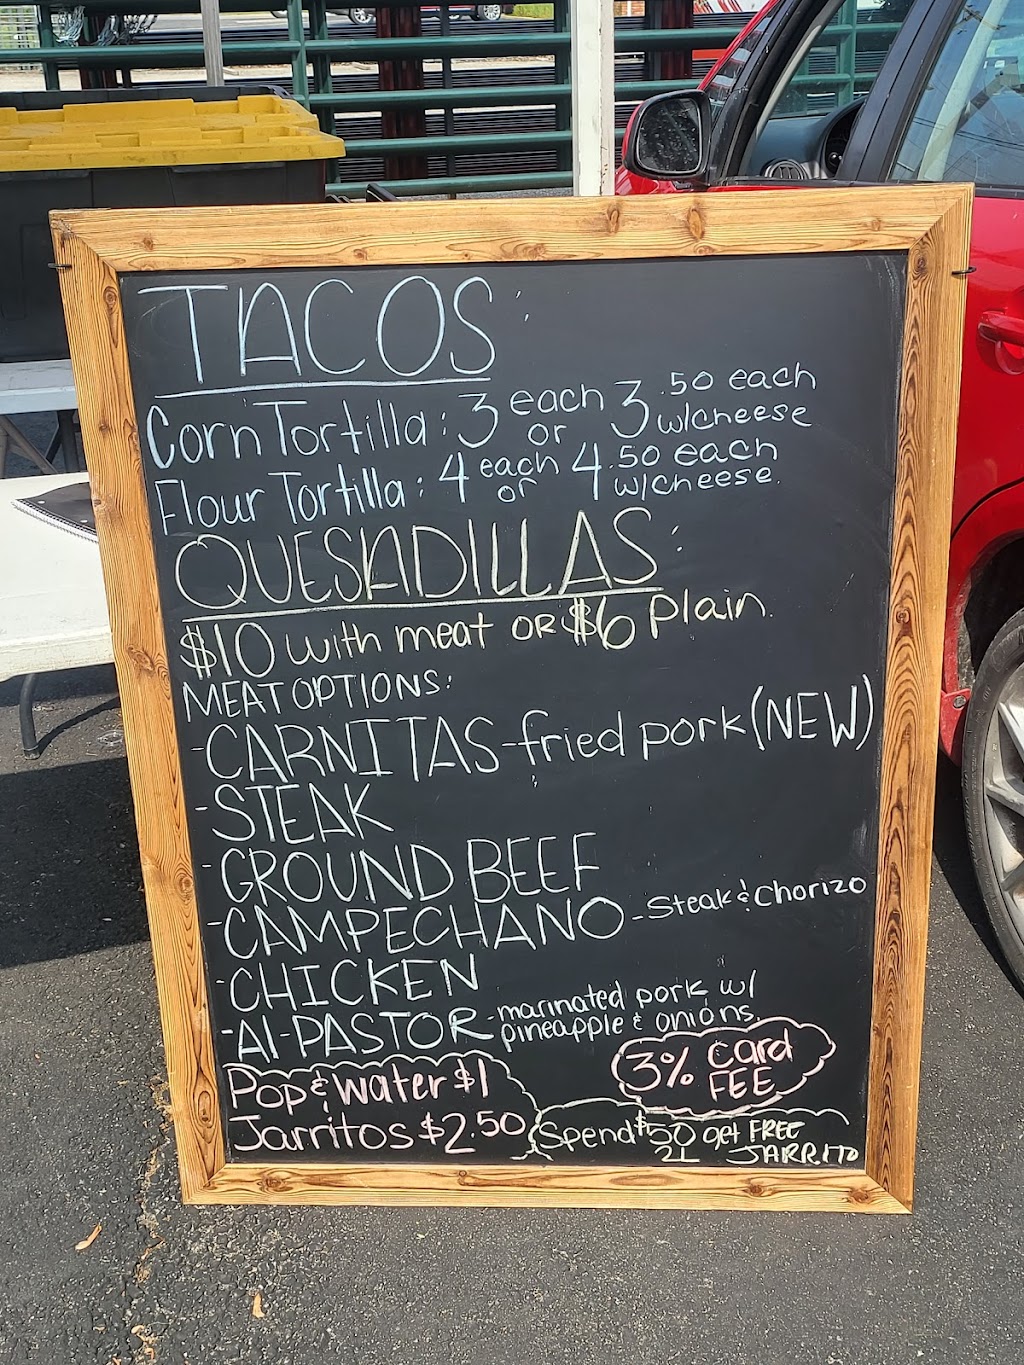 TACOS:
Corn Tortilla: 3 each or 3.50 each w/cheese
Flour Tortilla: 4 each or 4.50 each w/cheese.
QUESADILLAS:
$10 with meat OR $6 plain.
MEAT OPTIONS:
-CARNITAS-fried pork (NEW)
-STEAK
-GROUND BEEF
-CAMPECHANO-Steak & Chorizo
-CHICKEN
-Al-PASTOR-marinated pork w/
pineapple & onions.
3% Card
FEE
Pop & Water $1
Jarritos $2.50
Spend $50 get FREE
2L JARRITO